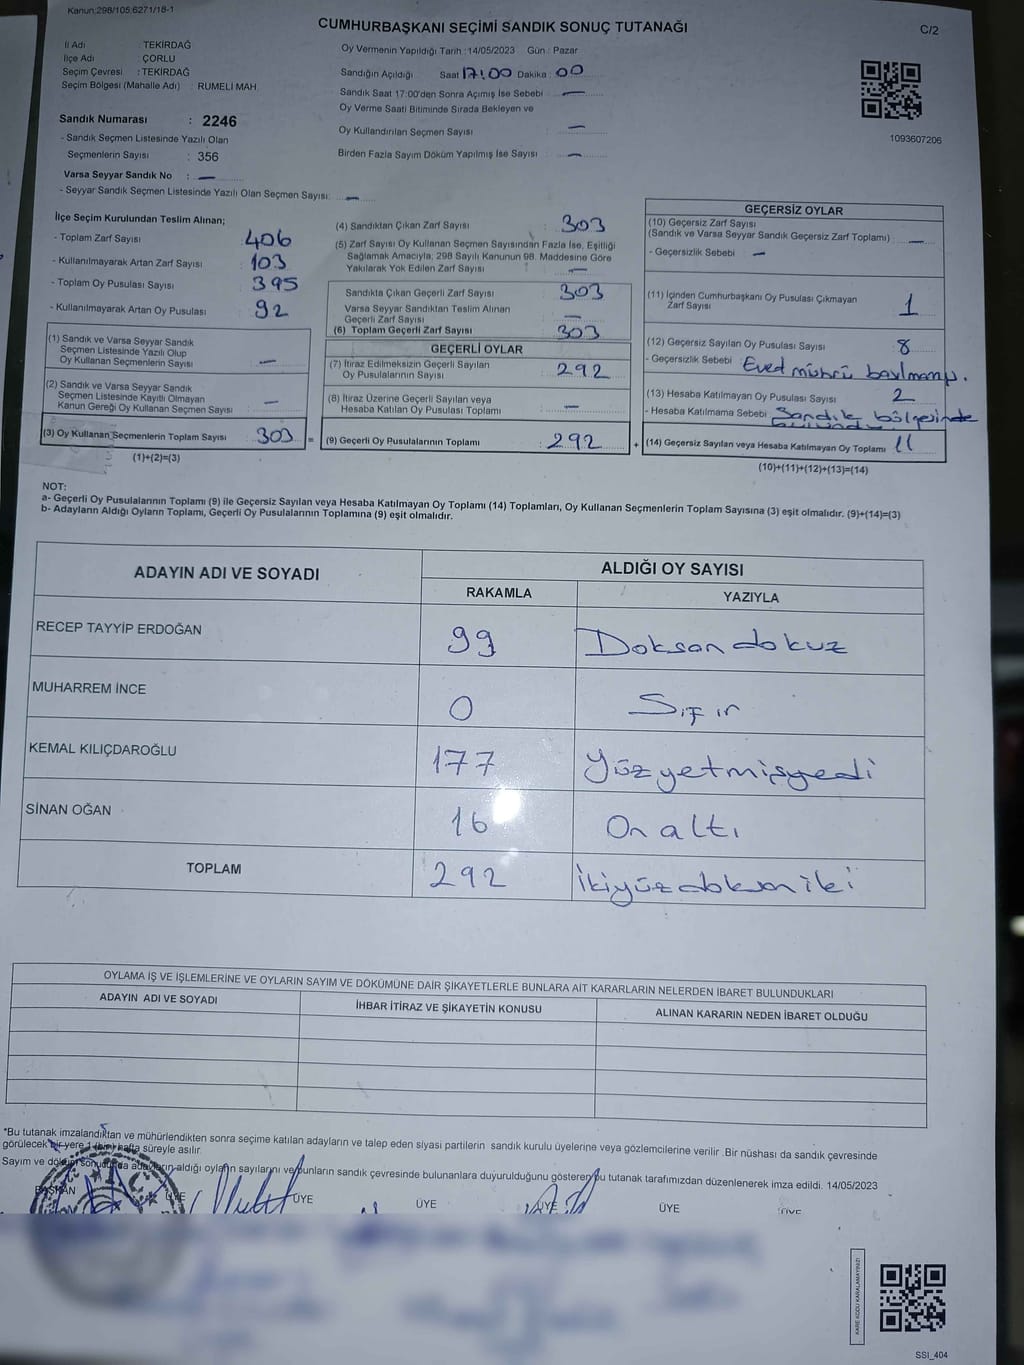 Kanun:298/105,6271/18-1
CUMHURBAŞKANI SEÇİMİ SANDIK SONUÇ TUTANAĞI
C/2
İl Adı : TEKİRDAĞ
İlçe Adı : ÇORLU
Seçim Çevresi : TEKİRDAĞ
Seçim Bölgesi (Mahalle Adı) : RUMELİ MAH.
Sandık Numarası : 2246
- Sandık Seçmen Listesinde Yazılı Olan
Seçmenlerin Sayısı : 356
Varsa Seyyar Sandık No : —
- Seyyar Sandık Seçmen Listesinde Yazılı Olan Seçmen Sayısı: —
Oy Vermenin Yapıldığı Tarih : 14/05/2023 Gün : Pazar
Sandığın Açıldığı Saat 17:00 Dakika : 00
Sandık Saat 17:00'den Sonra Açımış İse Sebebi : —
Oy Verme Saati Bitiminde Sırada Bekleyen ve
Oy Kullandırılan Seçmen Sayısı —
Birden Fazla Sayım Döküm Yapılmış İse Sayısı : —
1093607206
İlçe Seçim Kurulundan Teslim Alınan;
- Toplam Zarf Sayısı : 406
- Kullanılmayarak Artan Zarf Sayısı : 103
- Toplam Oy Pusulası Sayısı : 395
- Kullanılmayarak Artan Oy Pusulası : 92
(1) Sandık ve Varsa Seyyar Sandık
Seçmen Listesinde Yazılı Olup
Oy Kullanan Seçmenlerin Sayısı : —
(2) Sandık ve Varsa Seyyar Sandık
Seçmen Listesinde Kayıtlı Olmayan
Kanun Gereği Oy Kullanan Seçmen Sayısı : —
(3) Oy Kullanan Seçmenlerin Toplam Sayısı : 303 =
(1)+(2)=(3)
(4) Sandıktan Çıkan Zarf Sayısı : 303
(5) Zarf Sayısı Oy Kullanan Seçmen Sayısından Fazla İse, Eşitliği
Sağlamak Amacıyla; 298 Sayılı Kanunun 98. Maddesine Göre
Yakılarak Yok Edilen Zarf Sayısı : —
Sandıkta Çıkan Geçerli Zarf Sayısı : 303
Varsa Seyyar Sandıktan Teslim Alınan
Geçerli Zarf Sayısı : —
(6) Toplam Geçerli Zarf Sayısı : 303
GEÇERLİ OYLAR
(7) İtiraz Edilmeksizin Geçerli Sayılan
Oy Pusulalarının Sayısı : 292
(8) İtiraz Üzerine Geçerli Sayılan veya
Hesaba Katılan Oy Pusulası Toplamı : —
(9) Geçerli Oy Pusulalarının Toplamı : 292 +
GEÇERSİZ OYLAR
(10) Geçersiz Zarf Sayısı
(Sandık ve Varsa Seyyar Sandık Geçersiz Zarf Toplamı) : —
- Geçersizlik Sebebi : —
(11) İçinden Cumhurbaşkanı Oy Pusulası Çıkmayan
Zarf Sayısı : 1
(12) Geçersiz Sayılan Oy Pusulası Sayısı : 8
- Geçersizlik Sebebi :
(13) Hesaba Katılmayan Oy Pusulası Sayısı : 2
- Hesaba Katılmama Sebebi : Sandık bölgesinde
(14) Geçersiz Sayılan veya Hesaba Katılmayan Oy Toplamı : 11
(10)+(11)+(12)+(13)=(14)
NOT:
a- Geçerli Oy Pusulalarının Toplamı (9) ile Geçersiz Sayılan veya Hesaba Katılmayan Oy Toplamı (14) Toplamları, Oy Kullanan Seçmenlerin Toplam Sayısına (3) eşit olmalıdır. (9)+(14)=(3)
b- Adayların Aldığı Oyların Toplamı, Geçerli Oy Pusulalarının Toplamına (9) eşit olmalıdır.
ADAYIN ADI VE SOYADI
ALDIĞI OY SAYISI
RAKAMLA YAZIYLA
RECEP TAYYİP ERDOĞAN 99 Doksan dokuz
MUHARREM İNCE 0 Sıfır
KEMAL KILIÇDAROĞLU 177 Yüzyetmişyedi
SİNAN OĞAN 16 On altı
TOPLAM 292 İkiyüzdoksan iki
OYLAMA İŞ VE İŞLEMLERİNE VE OYLARIN SAYIM VE DÖKÜMÜNE DAİR ŞİKAYETLERLE BUNLARA AİT KARARLARIN NELERDEN İBARET BULUNDUKLARI
ADAYIN ADI VE SOYADI İHBAR İTİRAZ VE ŞİKAYETİN KONUSU ALINAN KARARIN NEDEN İBARET OLDUĞU
*Bu tutanak imzalandıktan ve mühürlendikten sonra seçime katılan adayların ve talep eden siyasi partilerin sandık kurulu üyelerine veya gözlemcilerine verilir. Bir nüshası da sandık çevresinde
görülecek bir yere 1 (bir) hafta süreyle asılır.
Sayım ve döküm sonucunda adayların aldığı oyların sayılarını ve bunların sandık çevresinde bulunanlara duyurulduğunu gösteren bu tutanak tarafımızdan düzenlenerek imza edildi. 14/05/2023
BAŞKAN ÜYE ÜYE ÜYE ÜYE ÜYE ÜYE
KARE KODU KARALAMAYINIZ!
SSİ_404